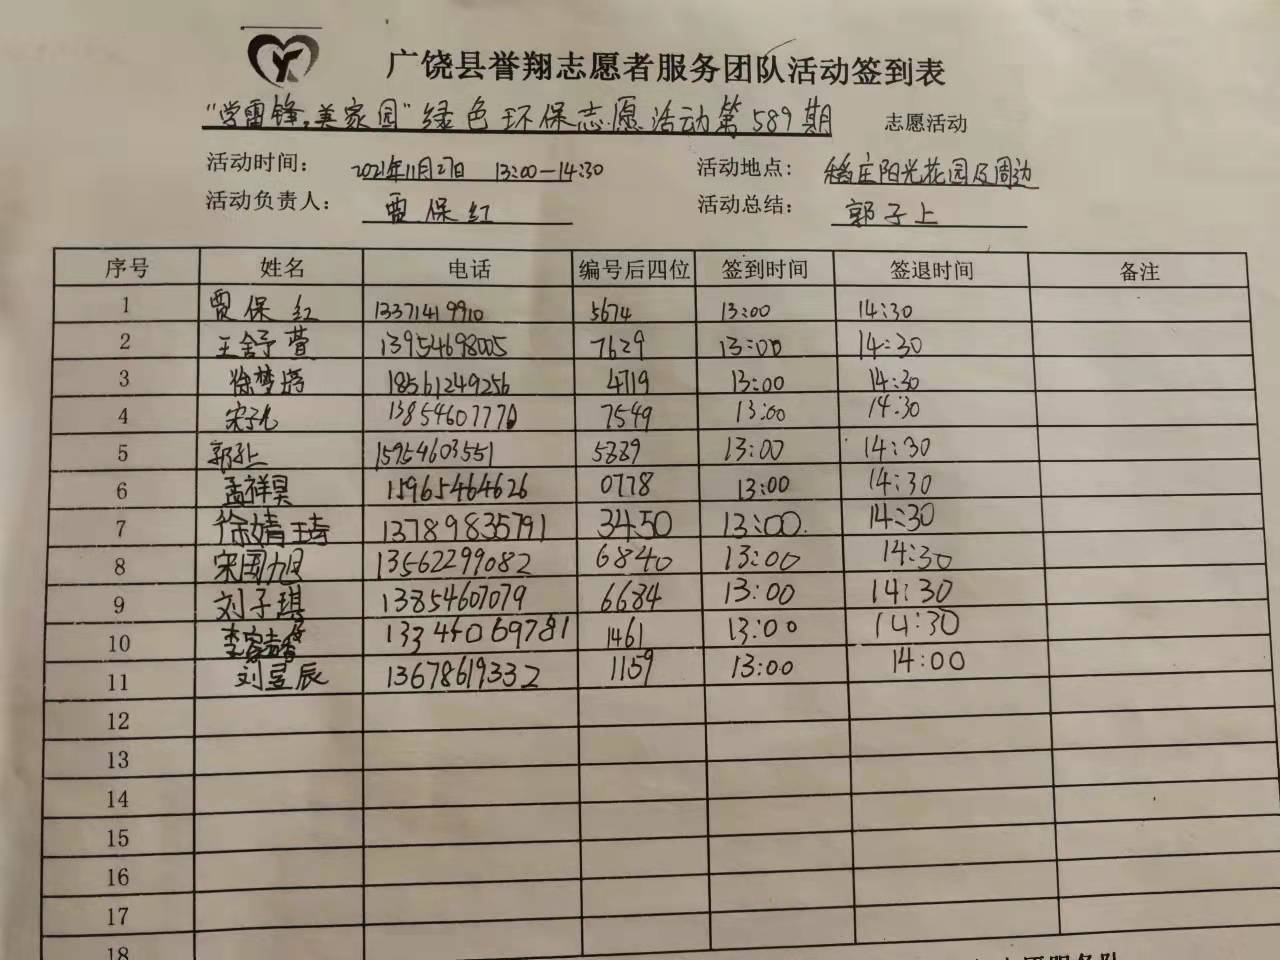 广饶县誉翔志愿者服务团队活动签到表
“学雷锋,美家园”绿色环保志愿活动第589期 志愿活动
活动时间: 2021年11月27日 13:00-14:30 活动地点: 稻庄阳光花园及周边
活动负责人: 贾保红 活动总结: 郭子上
序号 姓名 电话 编号后四位 签到时间 签退时间 备注
1 贾保红 13371419910 5674 13:00 14:30
2 王舒萱 13954698005 7629 13:00 14:30
3 徐梦 18561249256 4719 13:00 14:30
4 宋子 13854607770 7549 13:00 14:30
5 郭子上 15954603551 5889 13:00 14:30
6 孟祥昊 15965464626 0778 13:00 14:30
7 徐婧琦 13789835791 3450 13:00 14:30
8 宋国旭 13562299082 6840 13:00 14:30
9 刘子琪 13854607079 6684 13:00 14:30
10 李家 13345069781 1461 13:00 14:30
11 刘昱辰 13678619332 1159 13:00 14:00
12
13
14
15
16
17
18